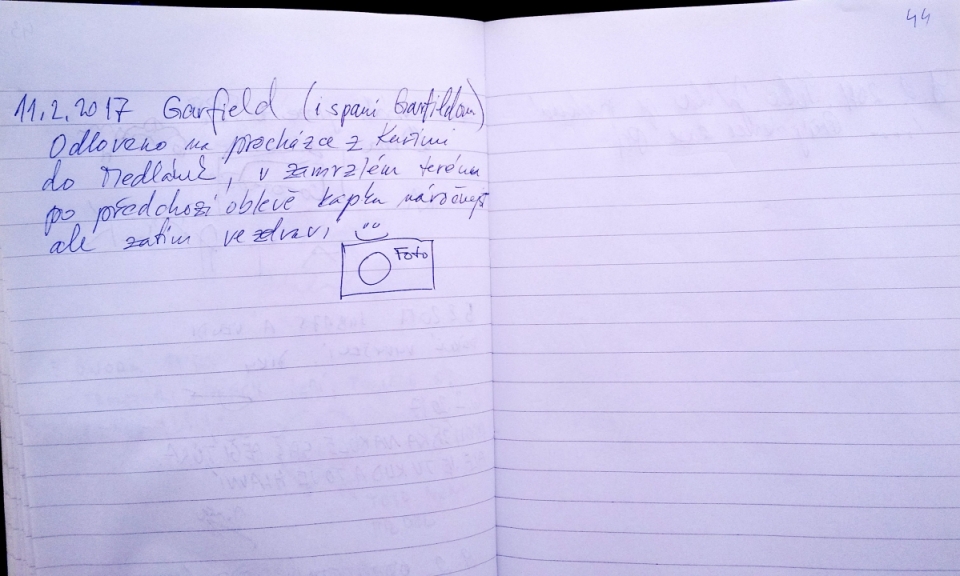 44
11.2.2017 Garfield (i s paní Garfildovou)
Odloveno na procházce z Kuřimi
do Medlánek, v zamrzlém terénu
po předchozí oblevě kapku náročnější
ale zatím ve zdraví
Foto